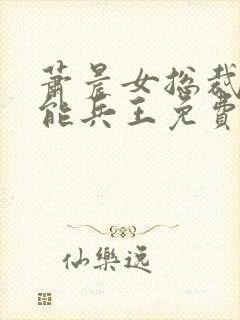 萧晨女总裁
能兵王免費
仙樂逸